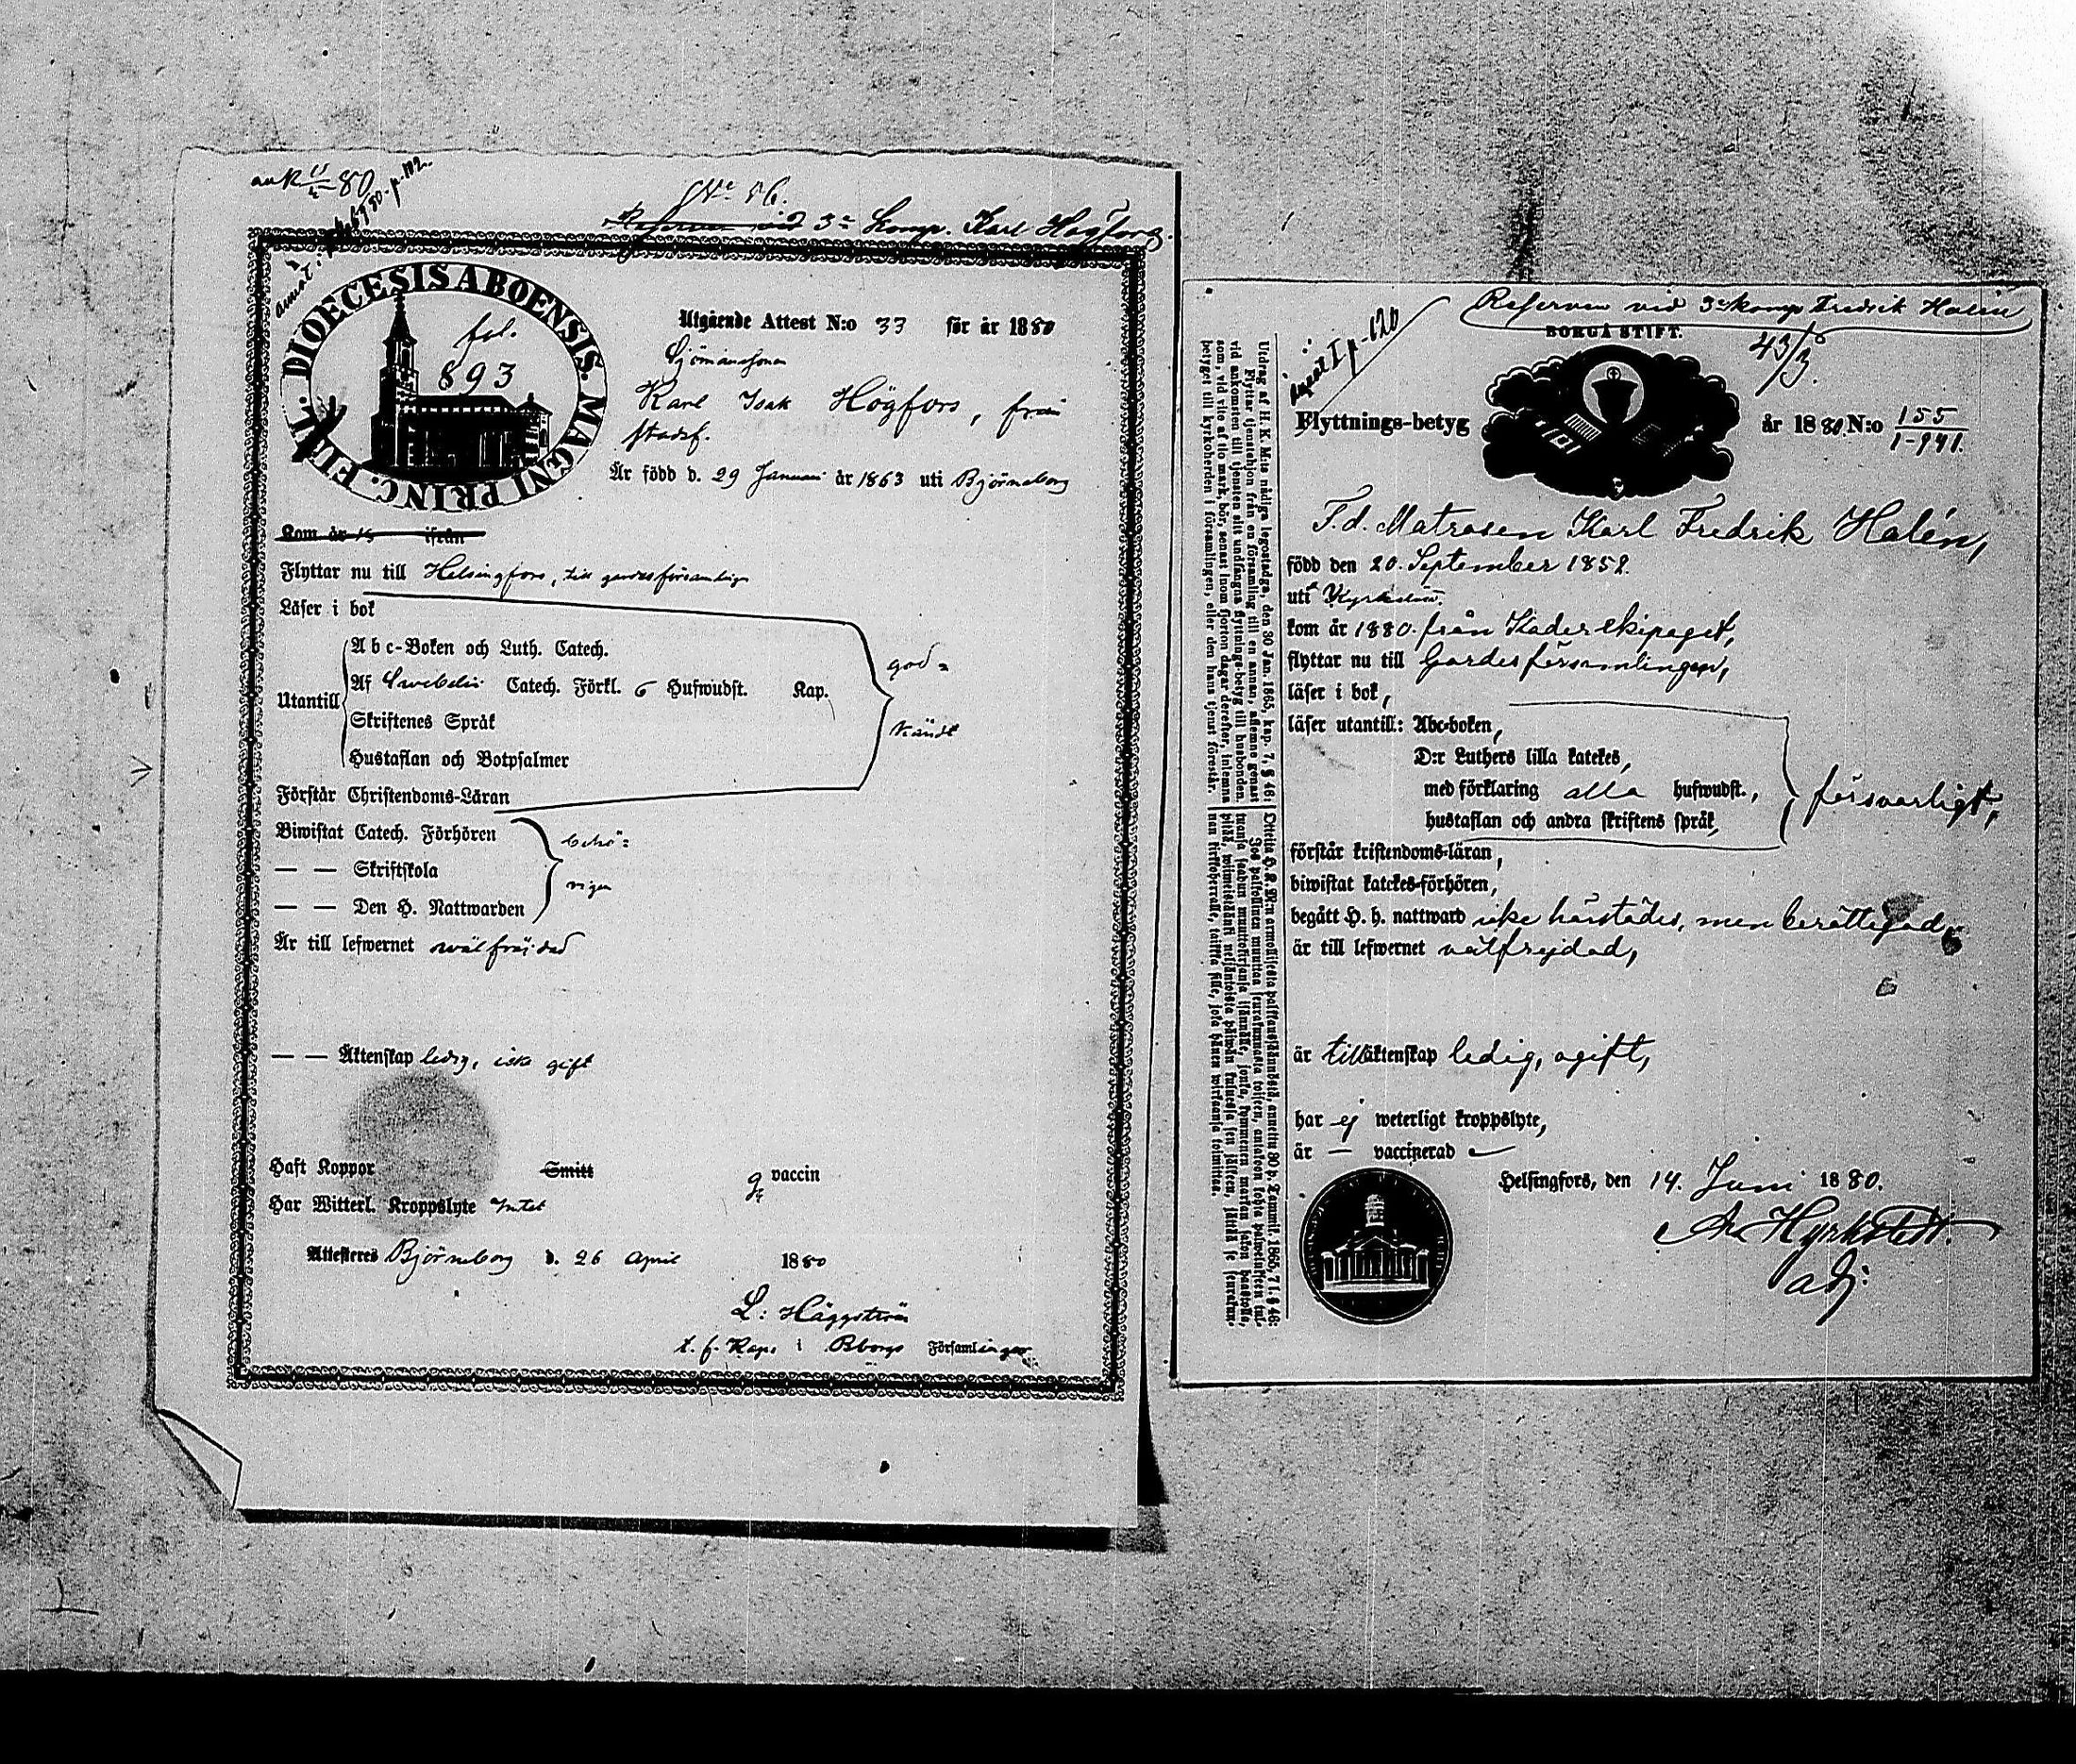 No 56.
Reserven vid 3e Komp. Karl Högfors
DIOECESIS ABOENSIS. MAGNI PRINC. FINL.
fol.
893
Utgående Attest N:o 33 för år 1880
Sjömanssonen
Karl Isak Högfors, från
stadsf.
Är född d. 29 Januari år 1863 uti Björneborg
Kom år 18 ifrån
Flyttar nu till Helsingfors, till gardesförsamlingen
Läser i bok
Utantill
A b c-Boken och Luth. Catech.
Af Swebelii Catech. Förkl. 6 Hufwudst. Kap.
Skriftenes Språk
Hustaflan och Botpsalmer
god=
kändt
Förstår Christendoms-Läran
Biwistat Catech. Förhören
— — Skriftskola
— — Den H. Nattwarden
behö=
rigen
Är till lefwernet wälfräjdad
— — Äktenskap ledig, icke gift
Haft Koppor Smitt vaccin
Har Witterl. Kroppslyte Intet
Attesteras Björneborg d. 26 April 1880
L: Häggström
t. f. Kapl. i Bborgs Församlingar
Reserven vid 3e Komp Fredrik Halén
BORGÅ STIFT.
43/3.
Flyttnings-betyg år 1880. N:o 155
1-941.
F. d. Matrosen Karl Fredrik Halén,
född den 20. September 1852.
uti Kyrkslätt.
kom år 1880. från Kaderekipaget,
flyttar nu till Gardesförsamlingen,
läser i bok,
läser utantill: Abc-boken,
D:r Luthers lilla katekes,
med förklaring alla hufwudst.,
hustaflan och andra skriftens språk,
försvarligt,
förstår kristendoms-läran,
biwistat katekes-förhören,
begått H. h. nattward icke härstädes, men berättigad,
är till lefwernet välfrejdad,
är till äktenskap ledig, ogift,
har ej weterligt kroppslyte,
är — vaccinerad
Helsingfors, den 14. Juni 1880.
Hyrkstedt.
adj:
Utdrag af H. K. M:ts nådiga legostadga, den 30 Jan. 1865, kap. 7, § 46:
Flyttar tjenstehjon från en församling till en annan, aflemne genast
vid ankomsten till tjensten sitt undfångna flyttnings-betyg till husbonden,
som, vid vite af tio mark, bör, senast inom fjorton dagar derefter, inlemna
betyget till kyrkoherden i församlingen, eller den hans tjenst förestår.